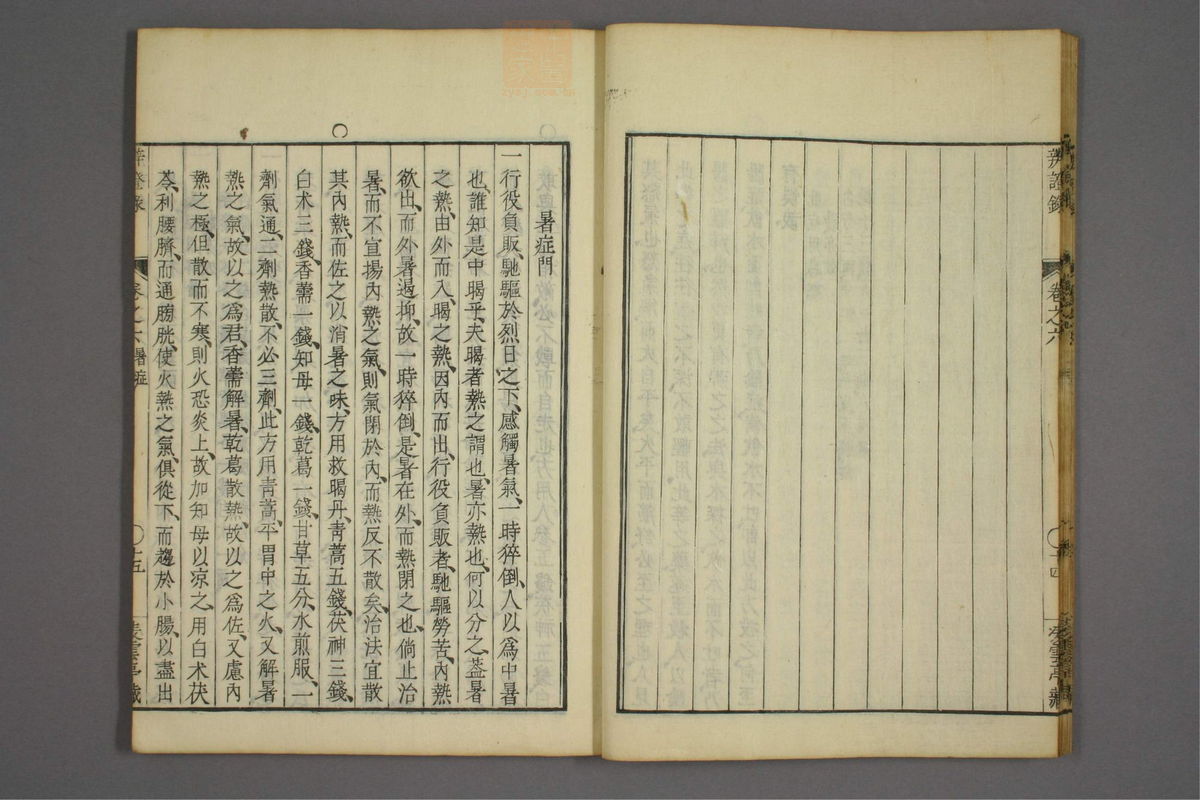 辨證錄 卷之六
暑症門
一行役負販馳驅於烈日之下感觸暑氣一時猝倒人以爲中暑
也誰知是中暍乎夫暍者熱之謂也暑亦熱也何以分之葢暑
之熱由外而入暍之熱因內而出行役負販者馳驅勞苦內熱
欲出而外暑遏抑故一時猝倒是暑在外而熱閉之也倘止治
暑而不宣揚內熱之氣則氣閉於內而熱反不散矣治法宜散
其內熱而佐之以消暑之味方用救暍丹靑蒿五錢茯神三錢
白朮三錢香薷一錢知母一錢乾葛一錢甘草五分水煎服一
劑氣通二劑熱散不必三劑此方用靑蒿平胃中之火又解暑
熱之氣故以之爲君香薷解暑乾葛散熱故以之爲佐又慮內
熱之極但散而不寒則火恐炎上故加知母以凉之用白朮茯
苓利腰臍而通膀胱使火熱之氣俱從下而趨於小腸以盡出
卷之六暑症